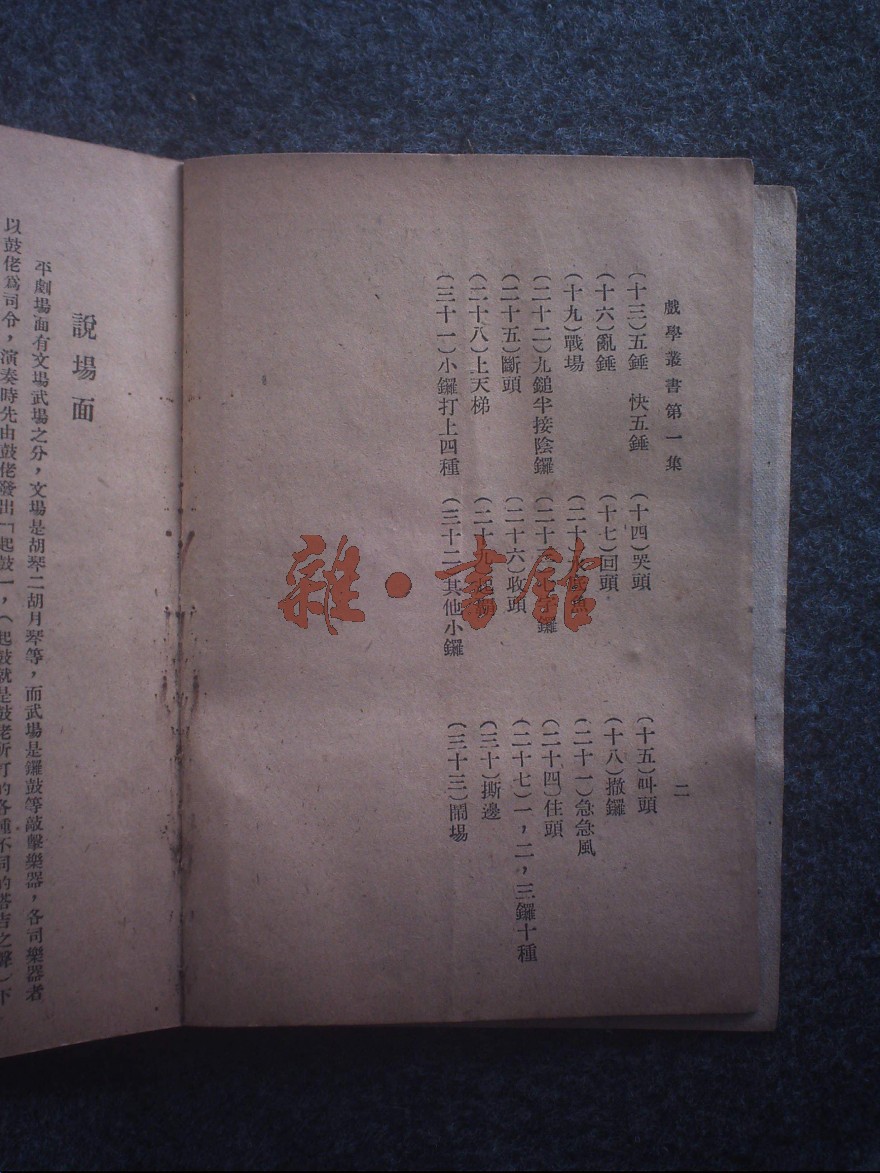 戲學叢書第一集
二
(十三)五錘 快五錘
(十四)哭頭
(十五)叫頭
(十六)亂錘
(十七)回頭
(十八)撤鑼
(十九)戰場
(二十)
魚
(二十一)急急風
(二十二)九鎚半接陰鑼
(二十
鑼
(二十四)住頭
(二十五)斷頭
(二十六)收頭
(二十七)一,二,三鑼十種
(二十八)上天梯
(二十九)起
(三十)撕邊
(三十一)小鑼打上四種
(三十二)其他小鑼
(三十三)鬧場
說場面
平劇場面有文場武場之分,文場是胡琴二胡月琴等,而武場是鑼鼓等敲擊樂器,各司樂器者
以鼓佬爲司令,演奏時先由鼓佬發出「起鼓」,(起鼓就是鼓老所打的各種不同的
之聲)下
雜·書館